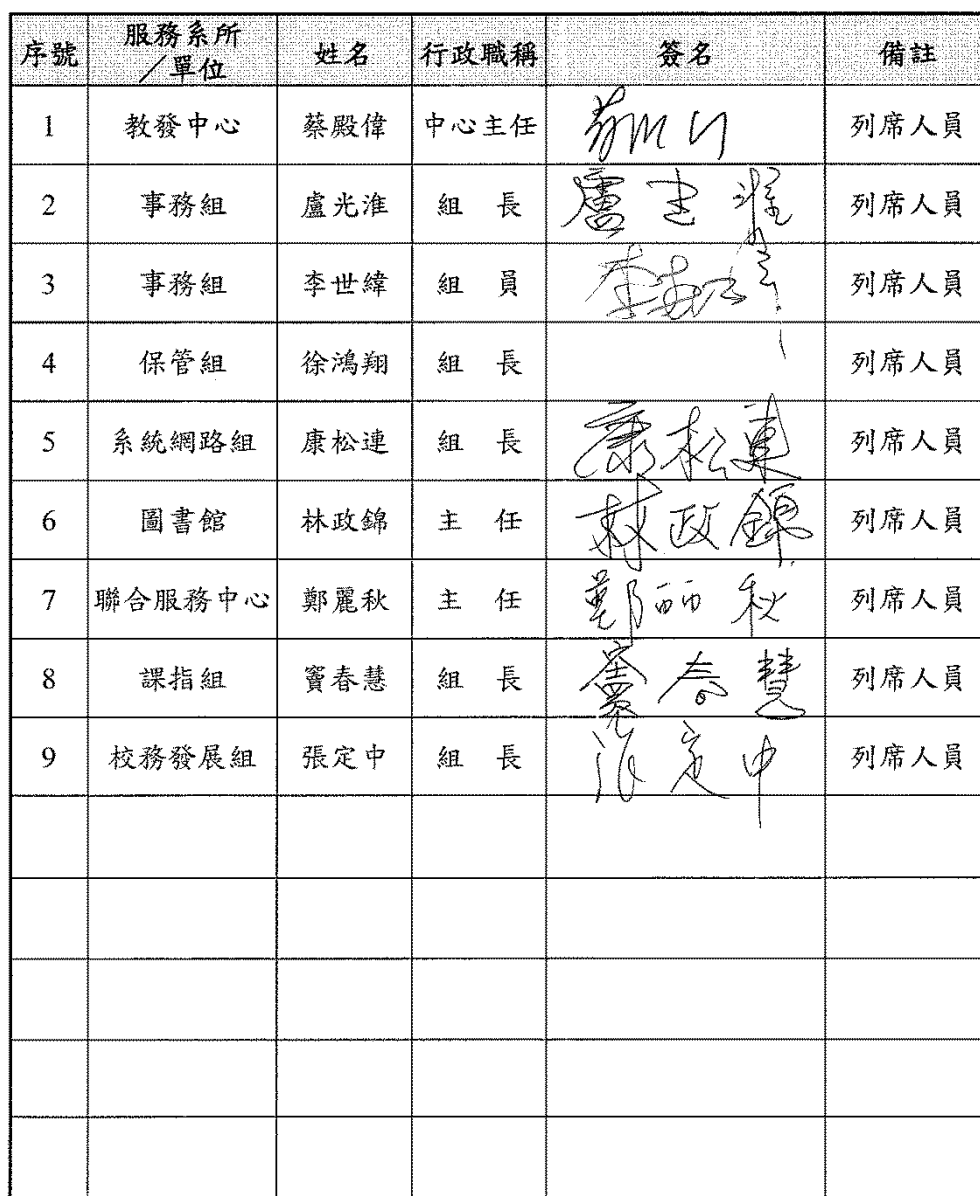 序號 服務系所／單位 姓名 行政職稱 簽名 備註
1 教發中心 蔡殿偉 中心主任 列席人員
2 事務組 盧光淮 組 長 盧 淮 列席人員
3 事務組 李世緯 組 員 李 列席人員
4 保管組 徐鴻翔 組 長 列席人員
5 系統網路組 康松連 組 長 康松 列席人員
6 圖書館 林政錦 主 任 林政錦 列席人員
7 聯合服務中心 鄭麗秋 主 任 鄭丽秋 列席人員
8 課指組 竇春慧 組 長 竇春慧 列席人員
9 校務發展組 張定中 組 長 张定中 列席人員